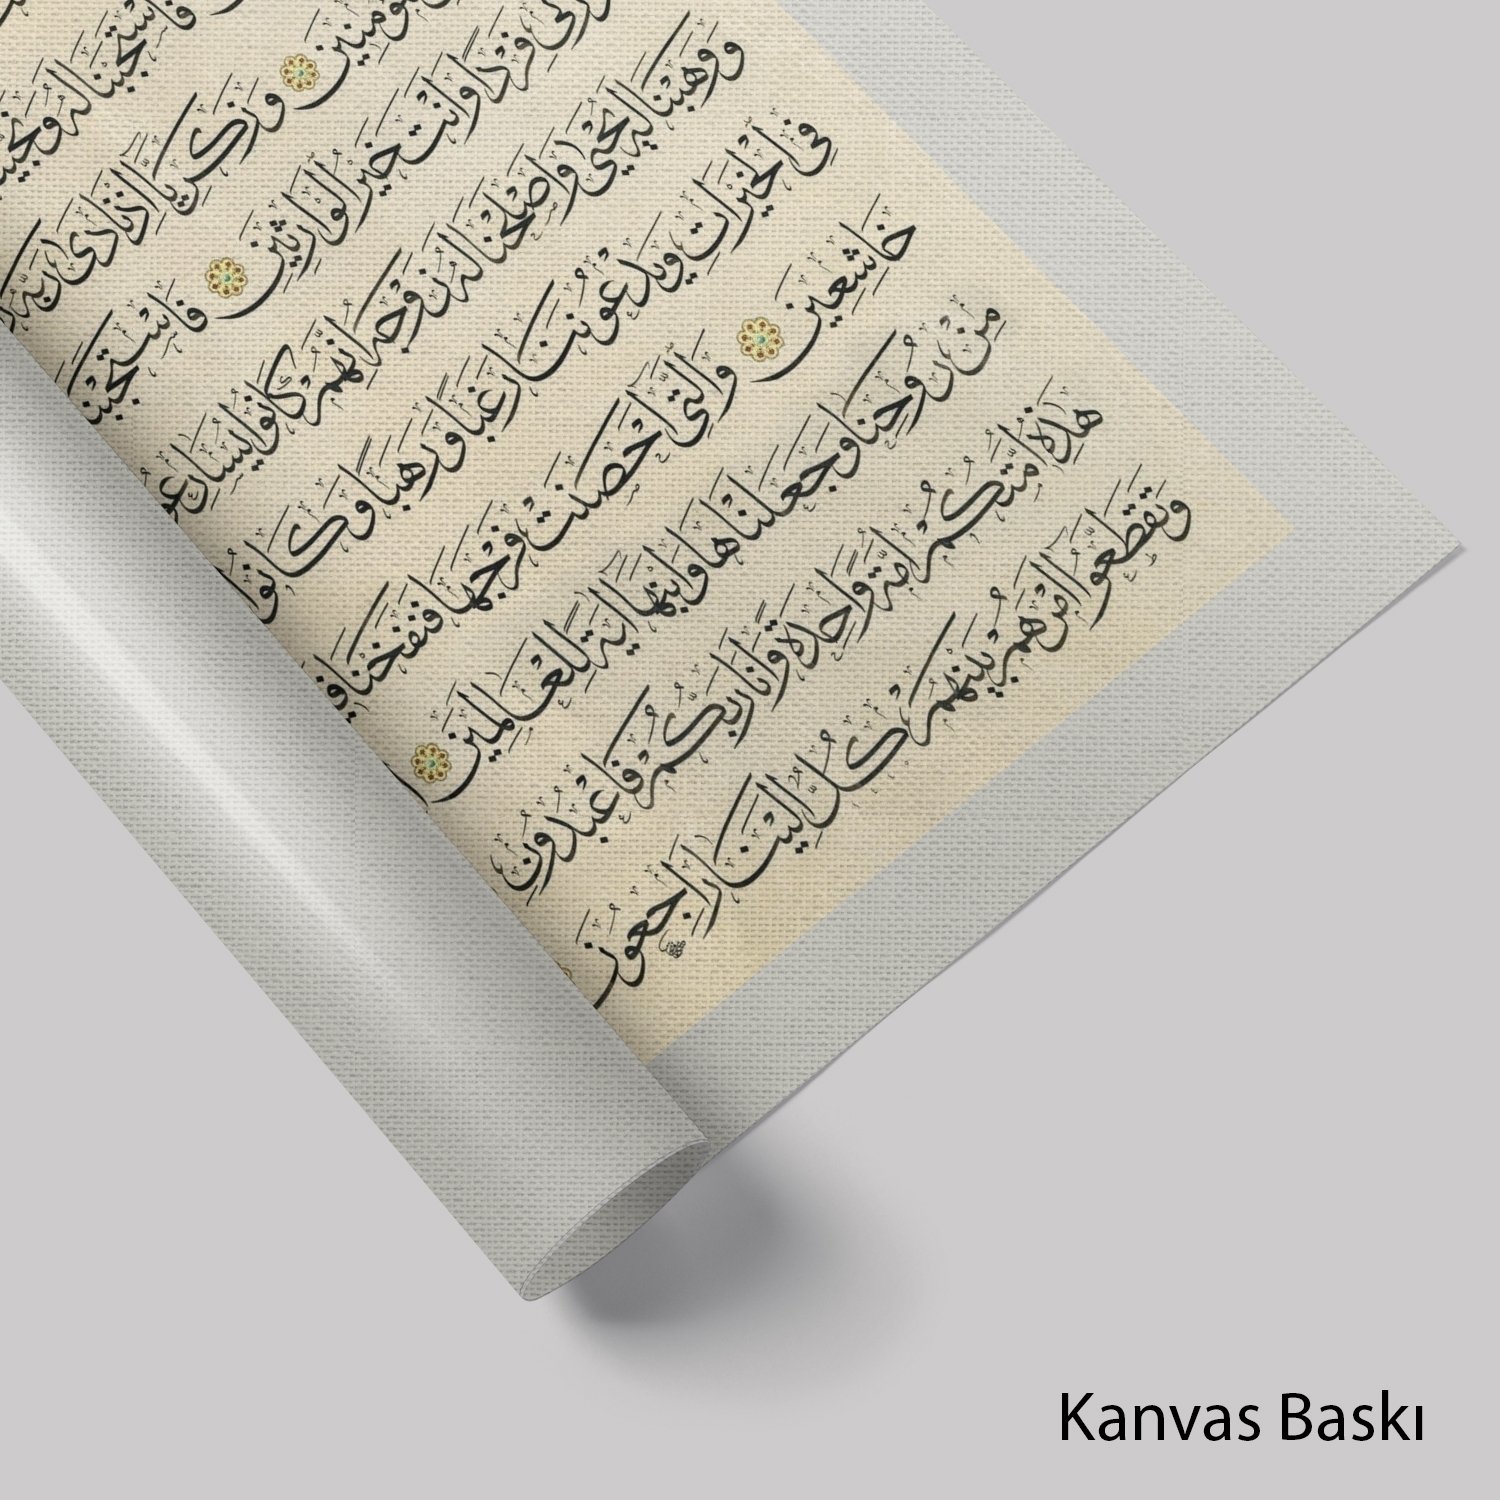 فَاسْتَجَبْنَا لَهُ
وَزَكَرِيَّا اِذْ نَادٰى رَبَّهُ
فَرْدًا وَاَنْتَ خَيْرُ الْوَارِثِينَ فَاسْتَجَبْنَا
وَوَهَبْنَا لَهُ يَحْيٰى وَاَصْلَحْنَا لَهُ زَوْجَهُ اِنَّهُمْ كَانُوا
فِى الْخَيْرَاتِ وَيَدْعُونَنَا رَغَبًا وَرَهَبًا وَكَانُوا
خَاشِعِينَ وَالَّتِى اَحْصَنَتْ فَرْجَهَا فَنَفَخْنَا
مِنْ رُوحِنَا وَجَعَلْنَاهَا وَابْنَهَا اٰيَةً لِلْعَالَمِينَ
هٰذِهِ اُمَّتُكُمْ اُمَّةً وَاحِدَةً وَاَنَا رَبُّكُمْ فَاعْبُدُونِ
وَتَقَطَّعُوا اَمْرَهُمْ بَيْنَهُمْ كُلٌّ اِلَيْنَا رَاجِعُونَ
Kanvas Baskı